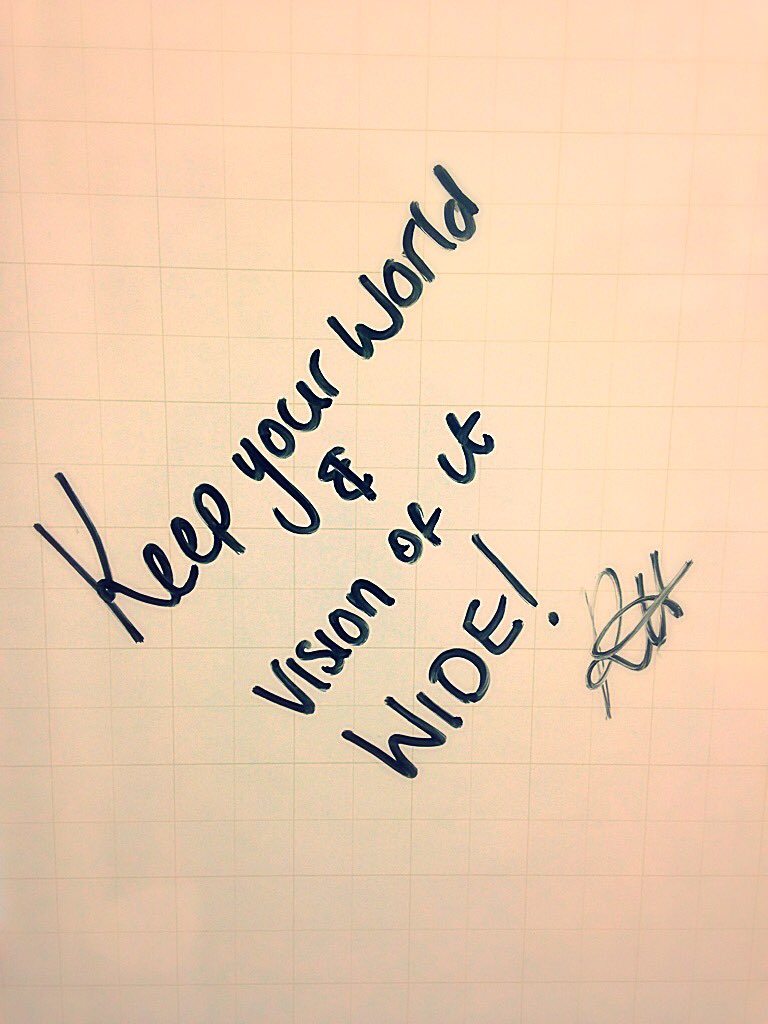 Keep your World
&
Vision of it
WIDE!